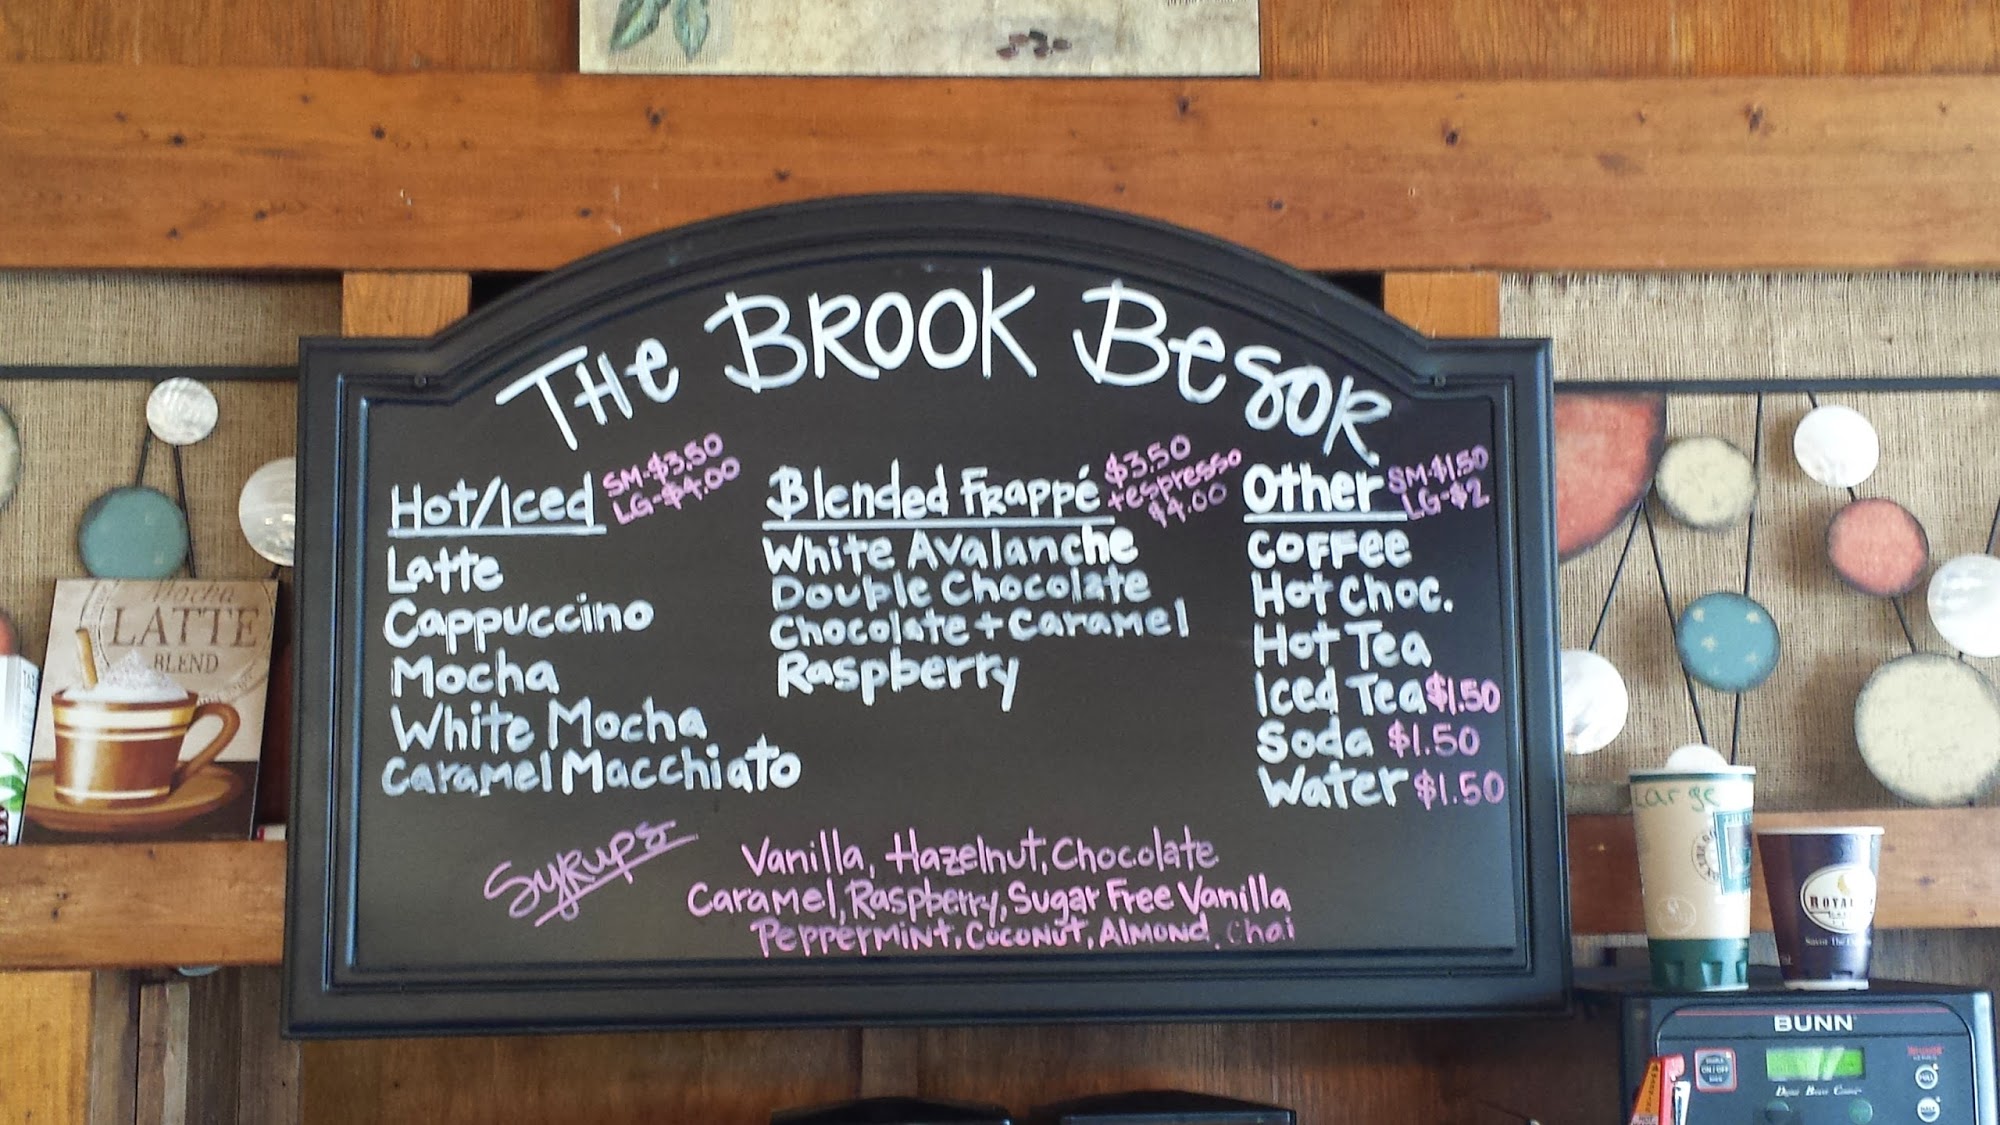 THe BROOK BesOR
Hot/Iced SM-$3.50
LG-$4.00
Latte
Cappuccino
Mocha
White Mocha
Caramel Macchiato
Blended Frappé $3.50
+espresso
$4.00
White Avalanche
Double Chocolate
Chocolate + Caramel
Raspberry
Other SM-$1.50
LG-$2
Coffee
Hot Choc.
Hot Tea
Iced Tea $1.50
Soda $1.50
Water $1.50
Syrups
Vanilla, Hazelnut, Chocolate
Caramel, Raspberry, Sugar Free Vanilla
Peppermint, Coconut, Almond, Chai
Mocha
LATTE
BLEND
Large
BUNN
ON/OFF